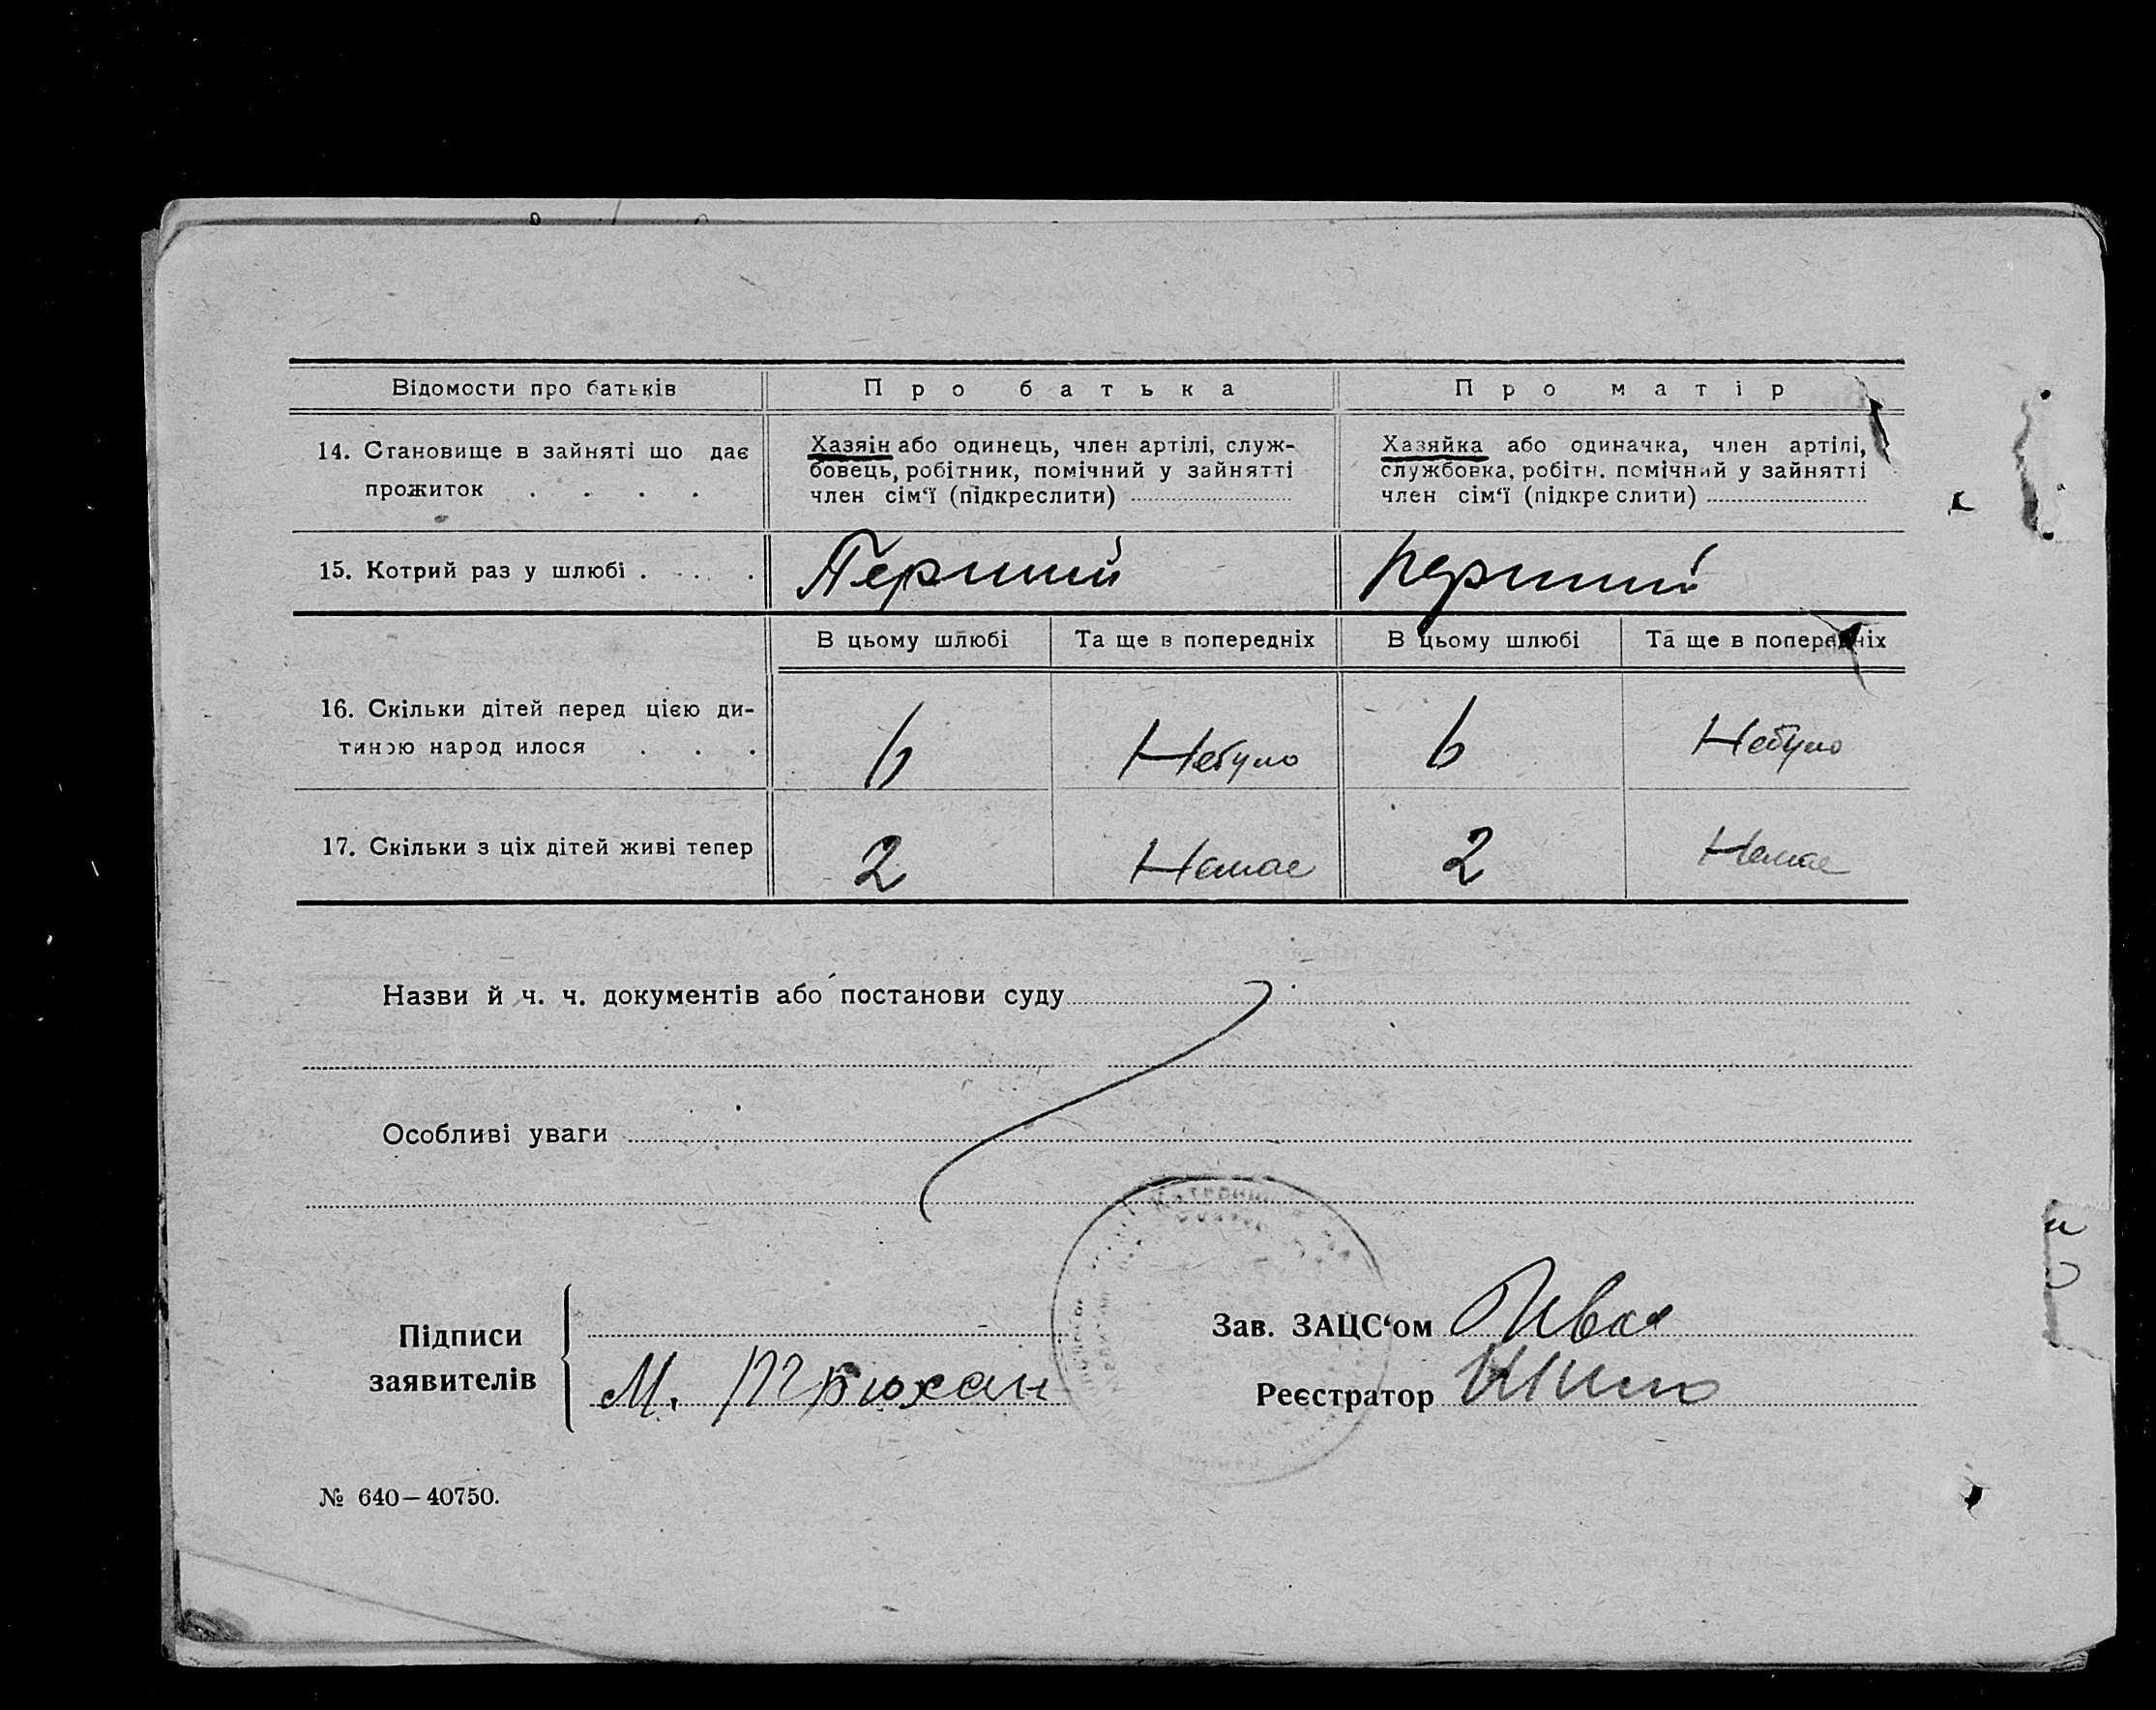 Відомости про батьків
Про батька
Про матір
14. Становище в зайняті що дає
прожиток . . . .
Хазяін або одинець, член артілі, служ-
бовець, робітник, помічний у зайнятті
член сім‘ї (підкреслити)
Хазяйка або одиначка, член артілі,
службовка, робітн. помічний у зайнятті
член сім‘ї (підкреслити)
15. Котрий раз у шлюбі . . . .
Перший
перший
В цьому шлюбі
Та ще в попередніх
В цьому шлюбі
Та ще в попередніх
16. Скільки дітей перед цією ди-
тиною народилося . . .
6
Небуло
6
Небуло
17. Скільки з ціх дітей живі тепер
2
Немає
2
Немає
Назви й ч. ч. документів або постанови суду
Особливі уваги
Підписи
заявителів
М.
Зав. ЗАЦС‘ом
Реєстратор
№ 640—40750.